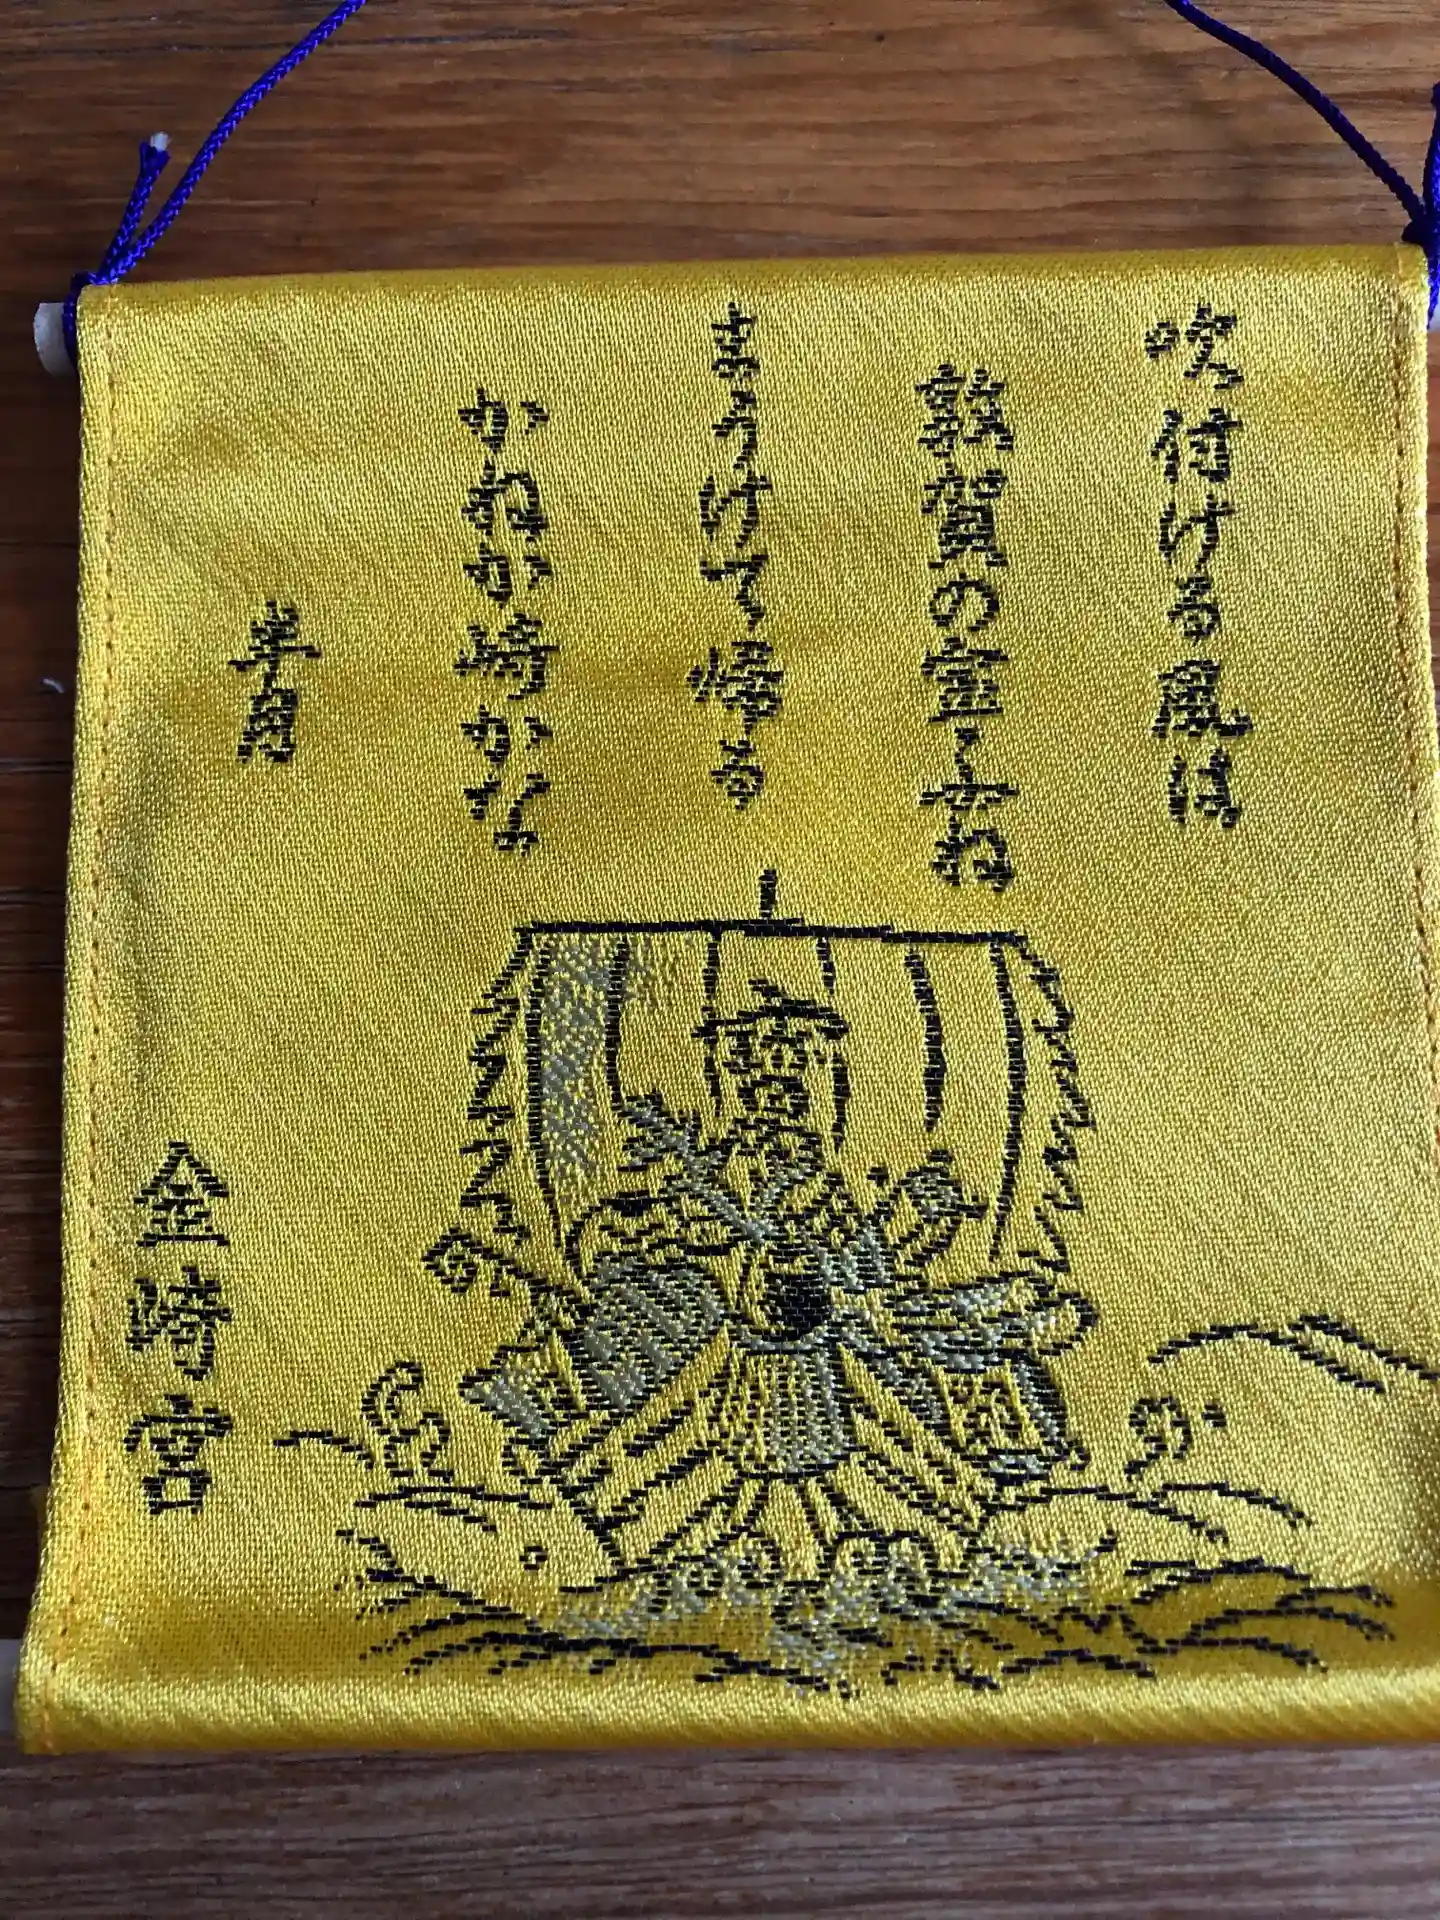 吹付ける風は
敦賀の宝ふね
まうけて帰る
かねか崎かな
半月
金崎宮